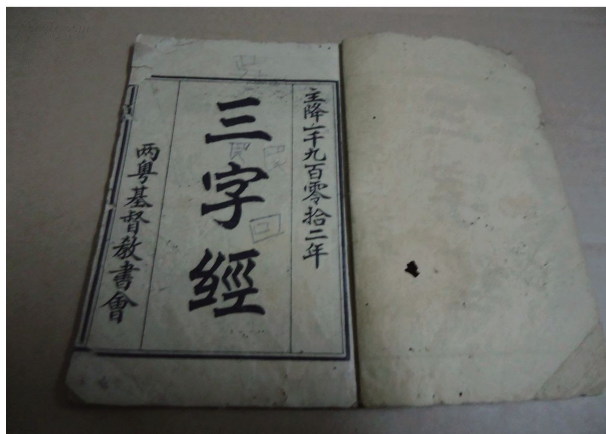 主降一千九百零拾二年
三字經
两粵基督教書會